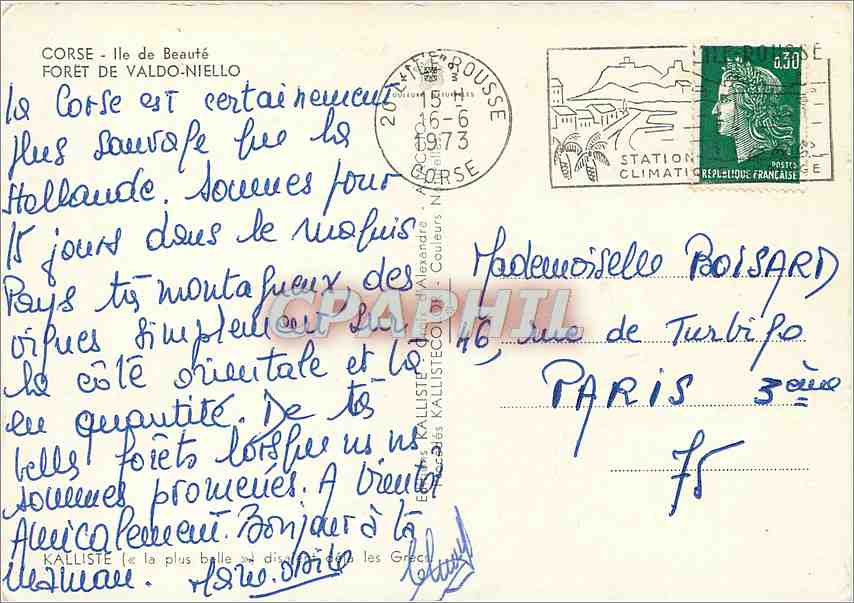 CORSE - Ile de Beauté
FORÊT DE VALDO-NIELLO
La Corse est certainement
plus sauvage que la
Hollande. Sommes pour
15 jours dans le maquis
Pays très montagneux, des
vignes simplement sur
la côte orientale et là
en quantité. De très
belles forêts lorsque ns ns
sommes promenés. A bientôt
Amicalement. Bonjour à ta
maman. Marie-Odile
KALLISTÉ (« la plus belle ») disaient déjà les Grecs
20 L'ILE-ROUSSE
15 H
16-6
1973
CORSE
ILE-ROUSSE
STATION
CLIMATIQUE
0,30
POSTES
RÉPUBLIQUE FRANÇAISE
Editions KALLISTE - d'Alexandre - AJACCIO
Procédés KALLISTECOLOR - Couleurs Naturelles
CPAPHIL
Mademoiselle BOISARD
46, rue de Turbigo
PARIS 3ème
75